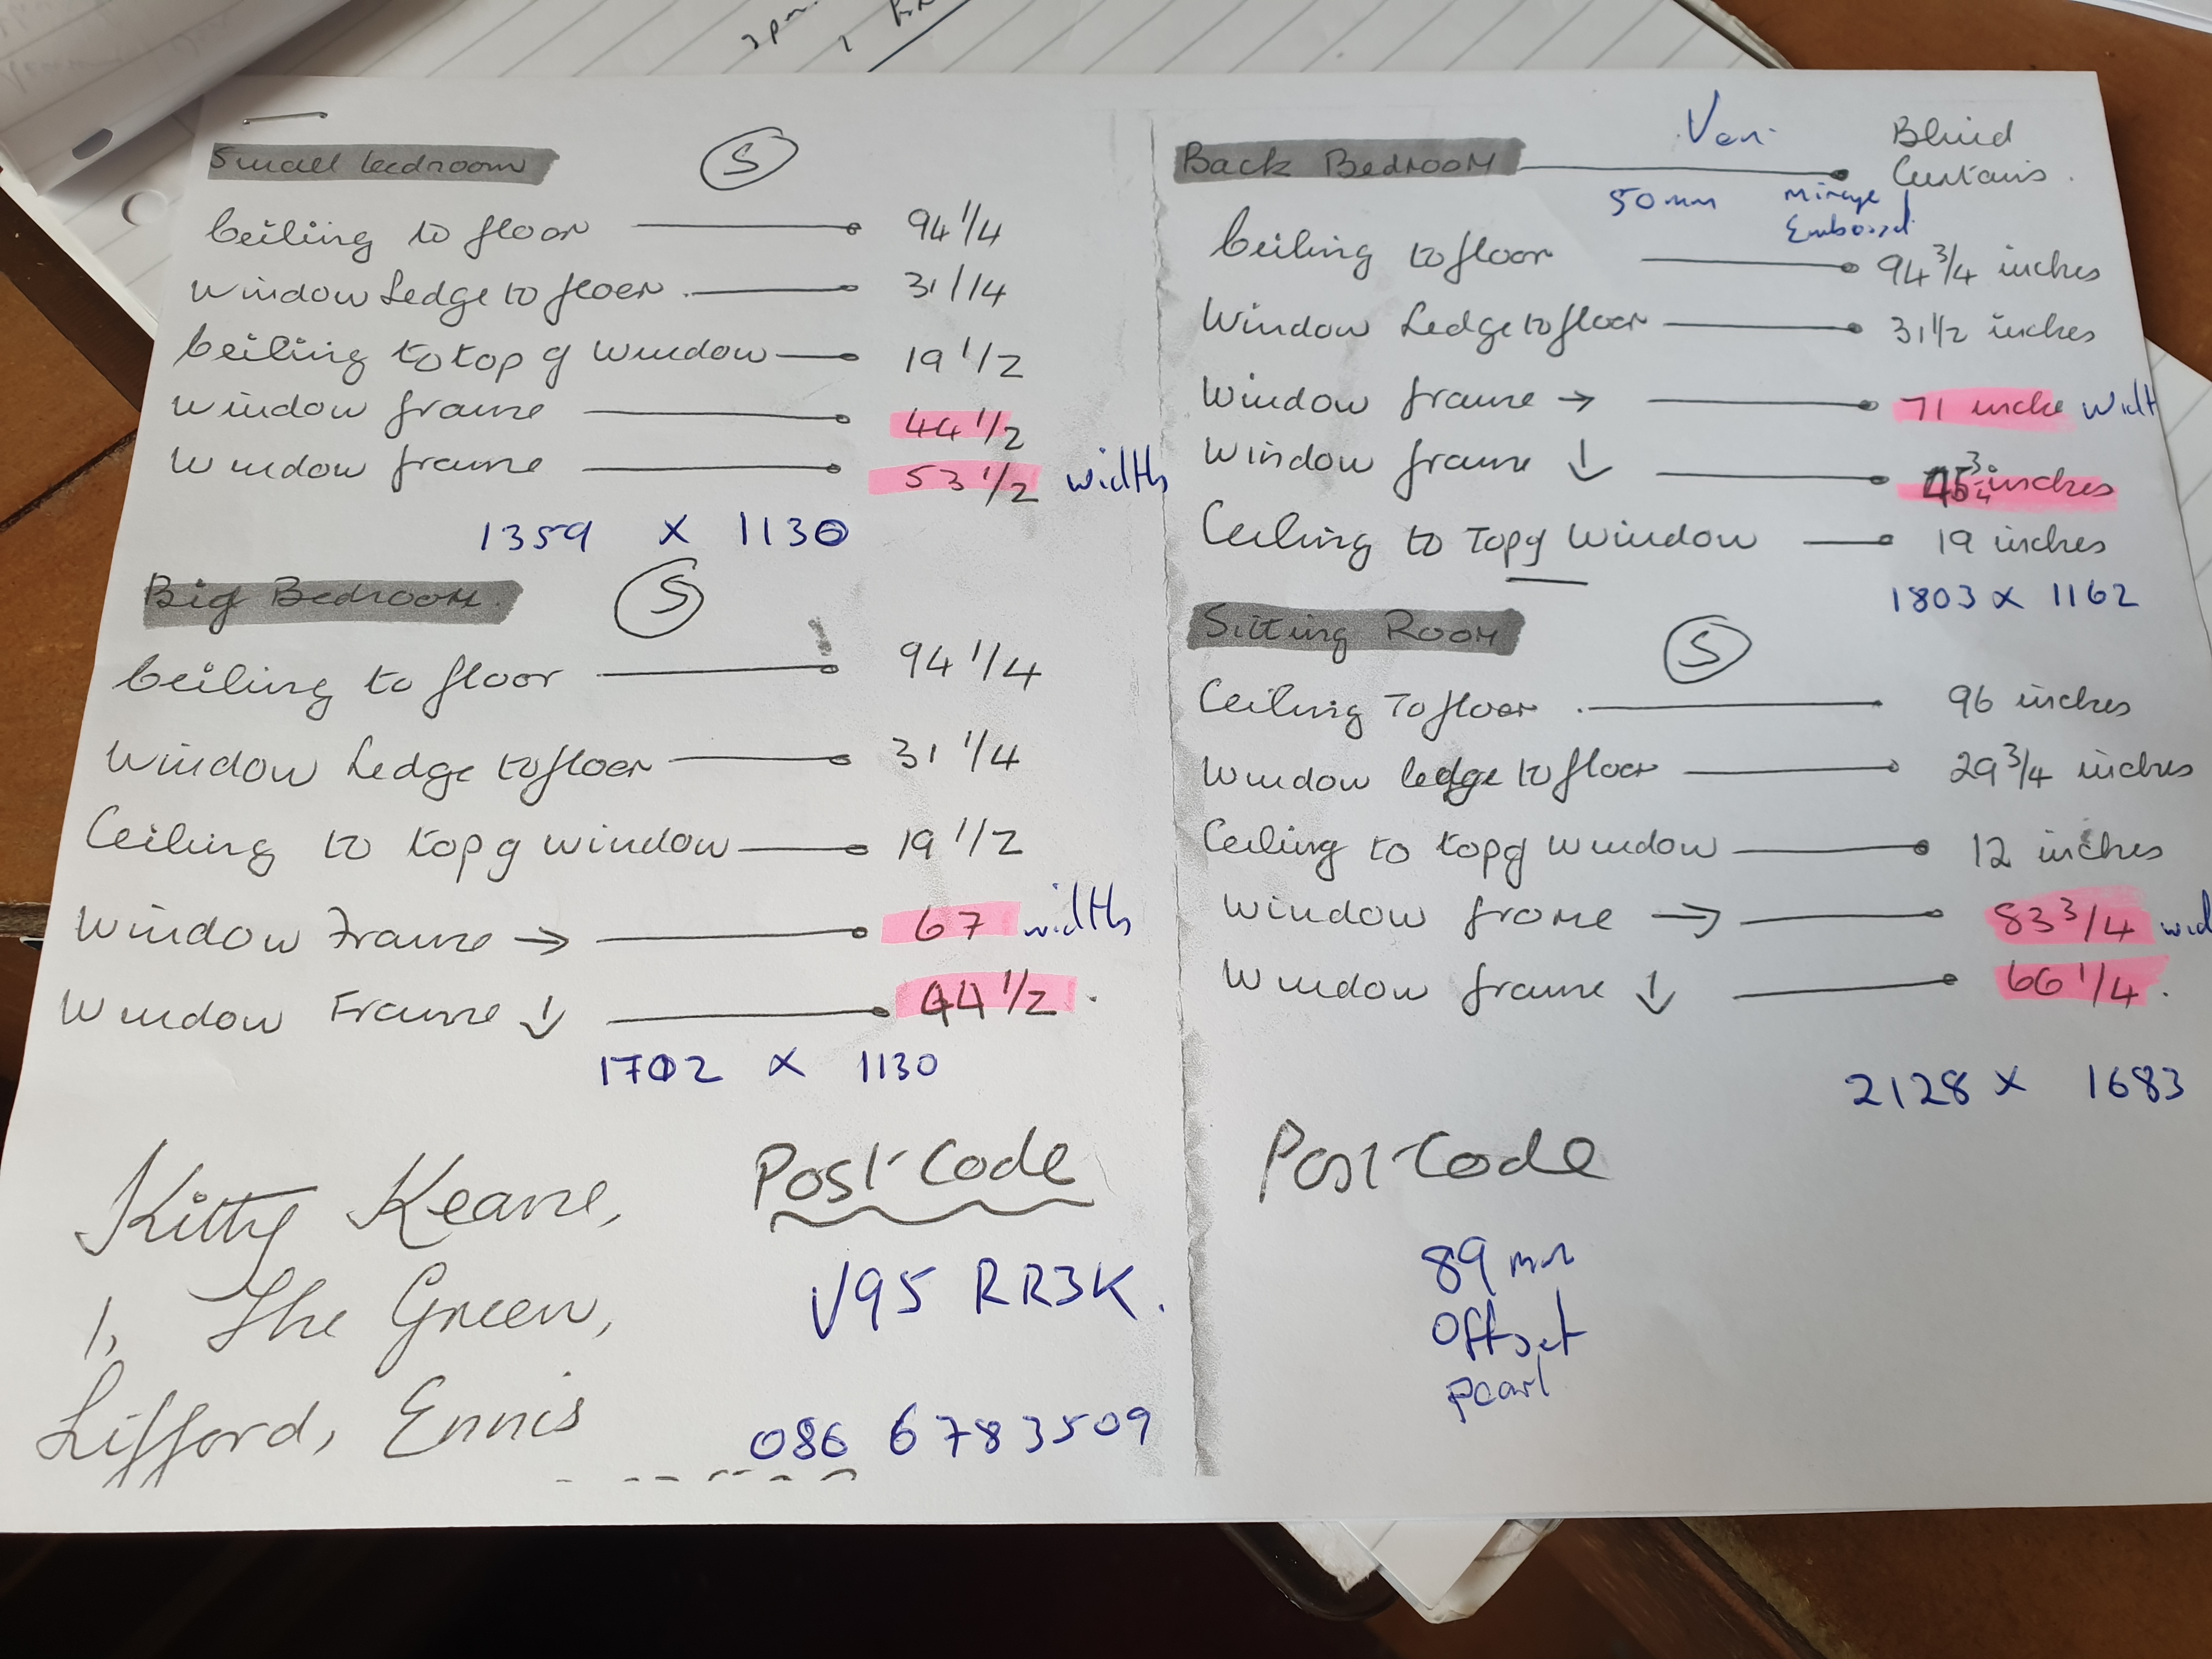 Small bedroom S
Ceiling to floor 94 1/4
Window Ledge to floor 31 1/4
Ceiling to top of window 19 1/2
Window frame 44 1/2
Window frame 53 1/2 widths
1359 x 1130
Big Bedroom S
Ceiling to floor 94 1/4
Window Ledge to floor 31 1/4
Ceiling to top of window 19 1/2
Window Frame → 67 widths
Window Frame ↓ 44 1/2
1702 x 1130
Kitty Keane,
1, The Green,
Lifford, Ennis
Post-Code
V95 RR3K.
086 6783509
Back Bedroom Ven Blind
Curtains.
50mm Mirage
Embossed
Ceiling to floor 94 3/4 inches
Window Ledge to floor 31 1/2 inches
Window frame → 71 inche Width
Window frame ↓ 45 3/4 inches
Ceiling to Top of Window 19 inches
1803 x 1162
Sitting Room S
Ceiling To floor 96 inches
Window ledge to floor 29 3/4 inches
Ceiling to top of window 12 inches
Window frame → 83 3/4 wid
Window frame ↓ 66 1/4.
2128 x 1683
Post-Code
89 mm
Offset
pearl